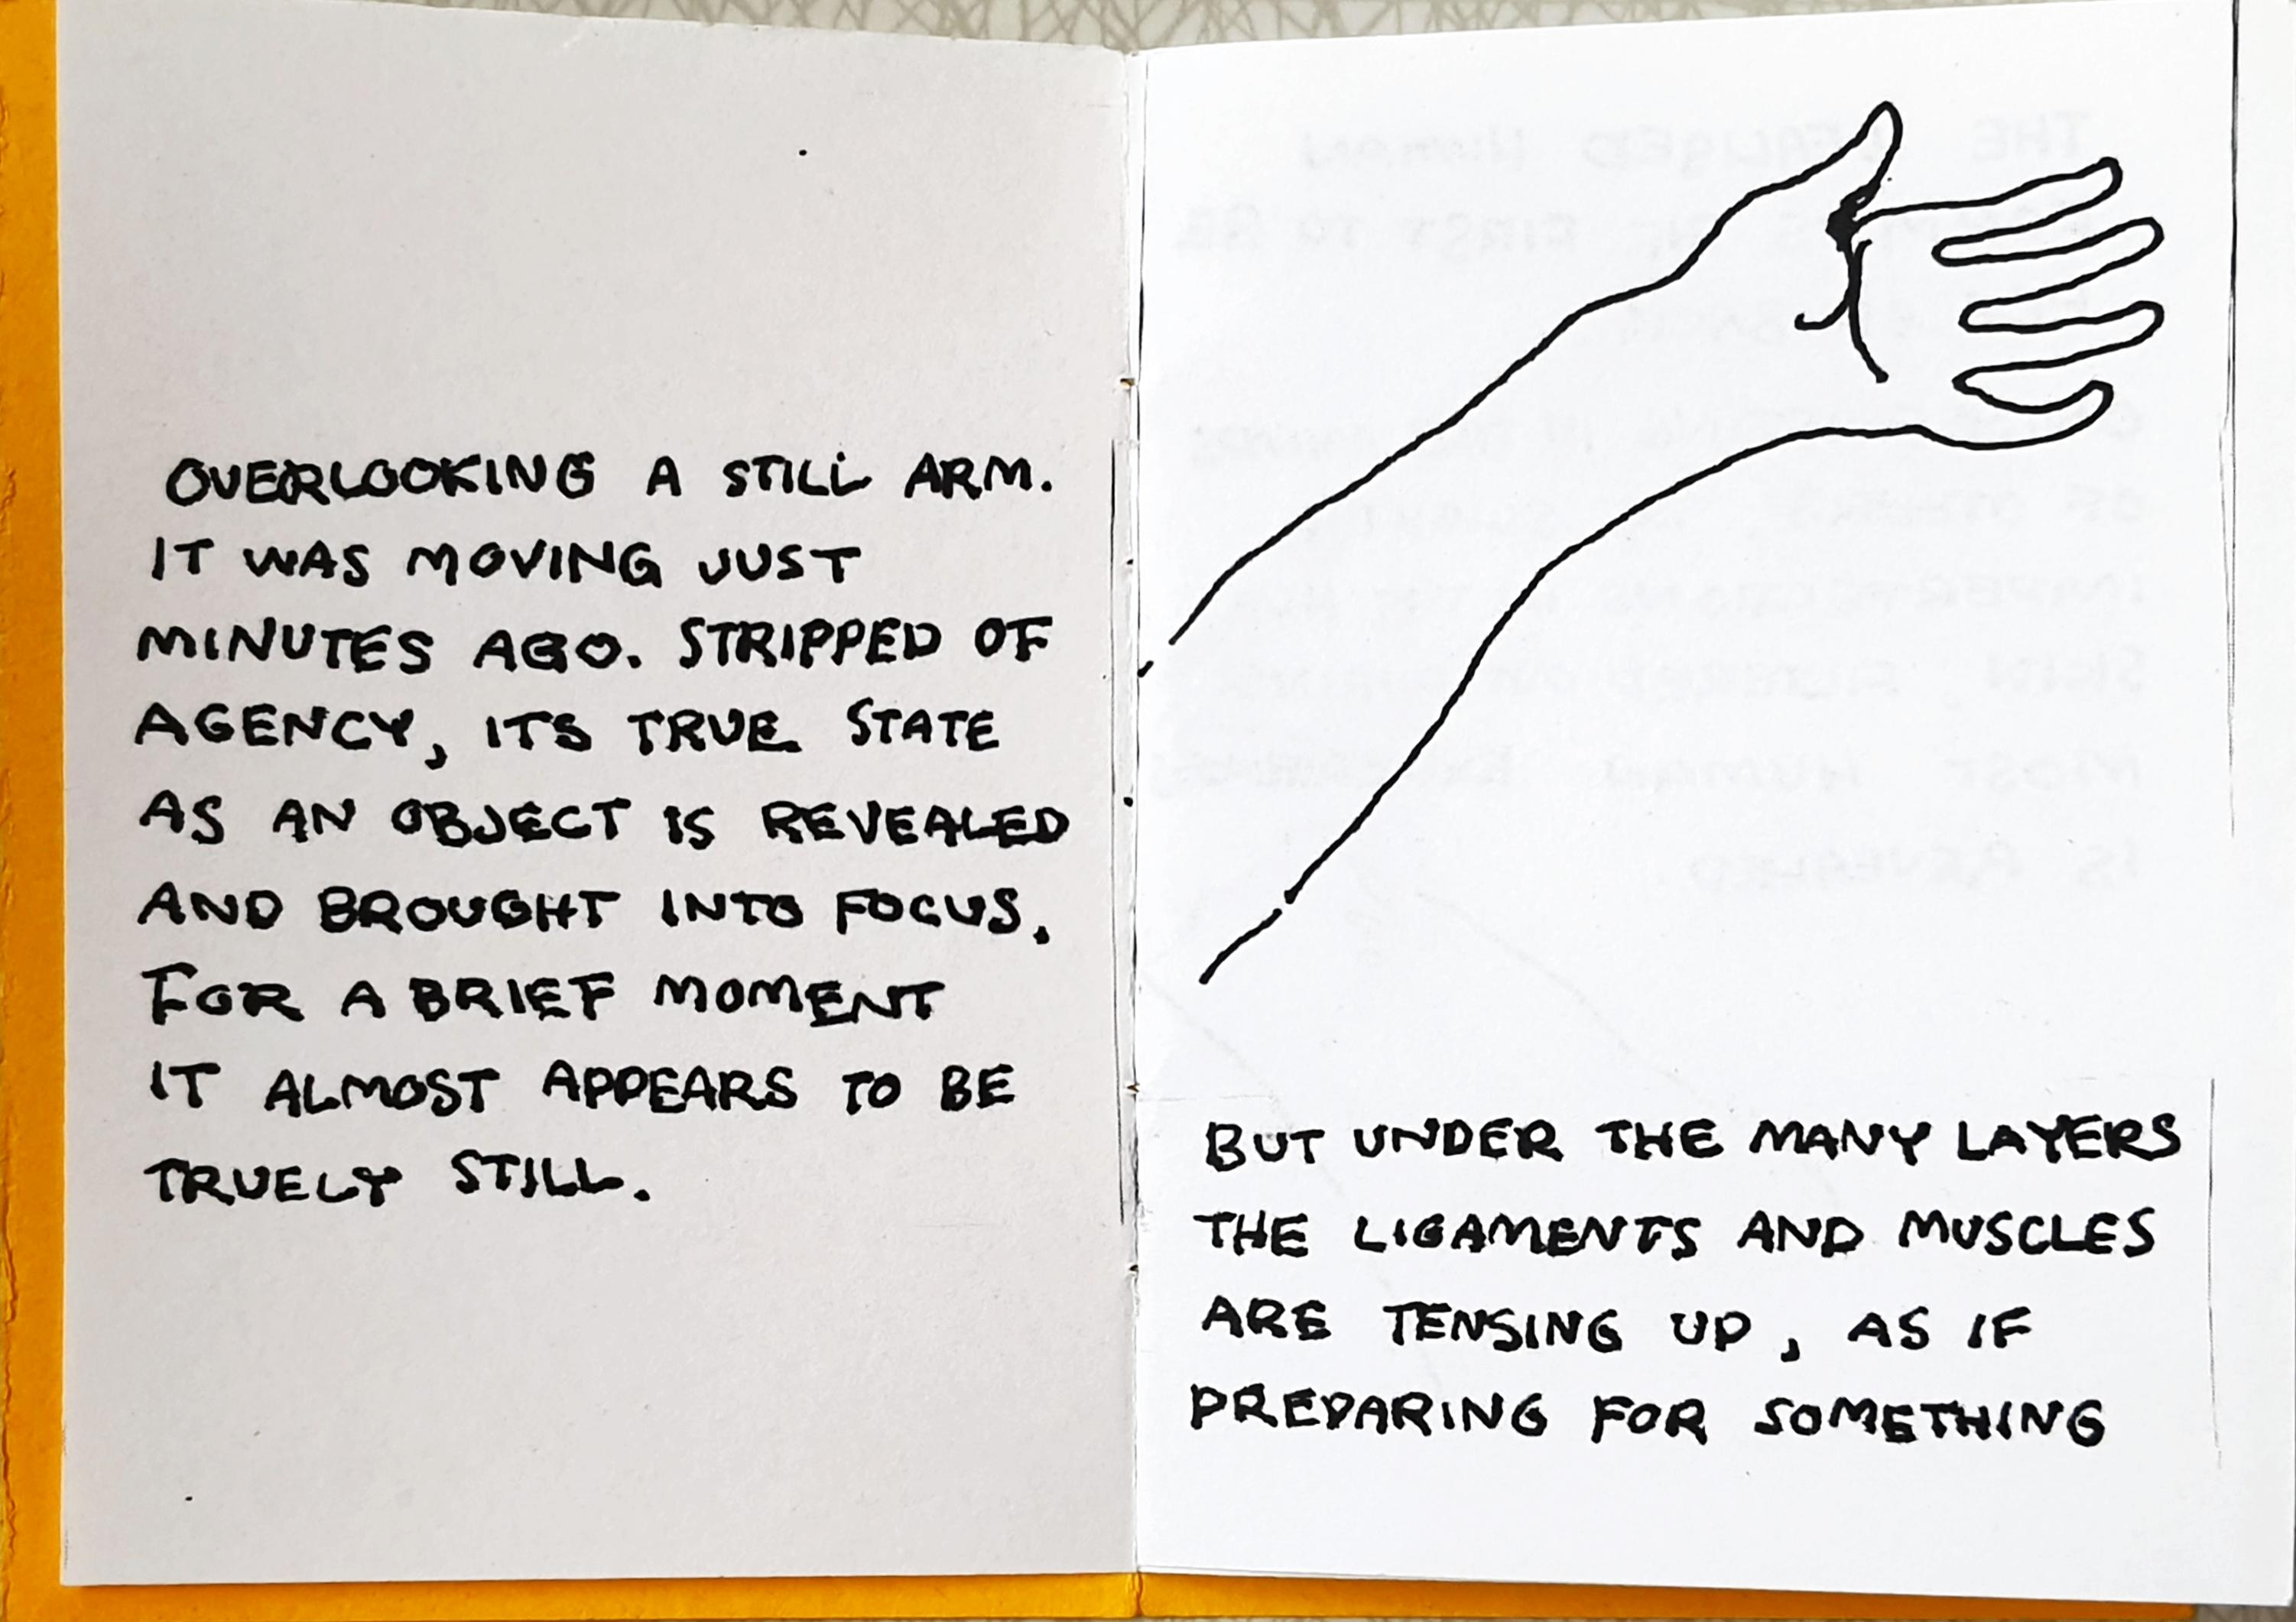 OVERLOOKING A STILL ARM.
IT WAS MOVING JUST
MINUTES AGO. STRIPPED OF
AGENCY, ITS TRUE STATE
AS AN OBJECT IS REVEALED
AND BROUGHT INTO FOCUS.
FOR A BRIEF MOMENT
IT ALMOST APPEARS TO BE
TRUELY STILL.
BUT UNDER THE MANY LAYERS
THE LIGAMENTS AND MUSCLES
ARE TENSING UP, AS IF
PREPARING FOR SOMETHING